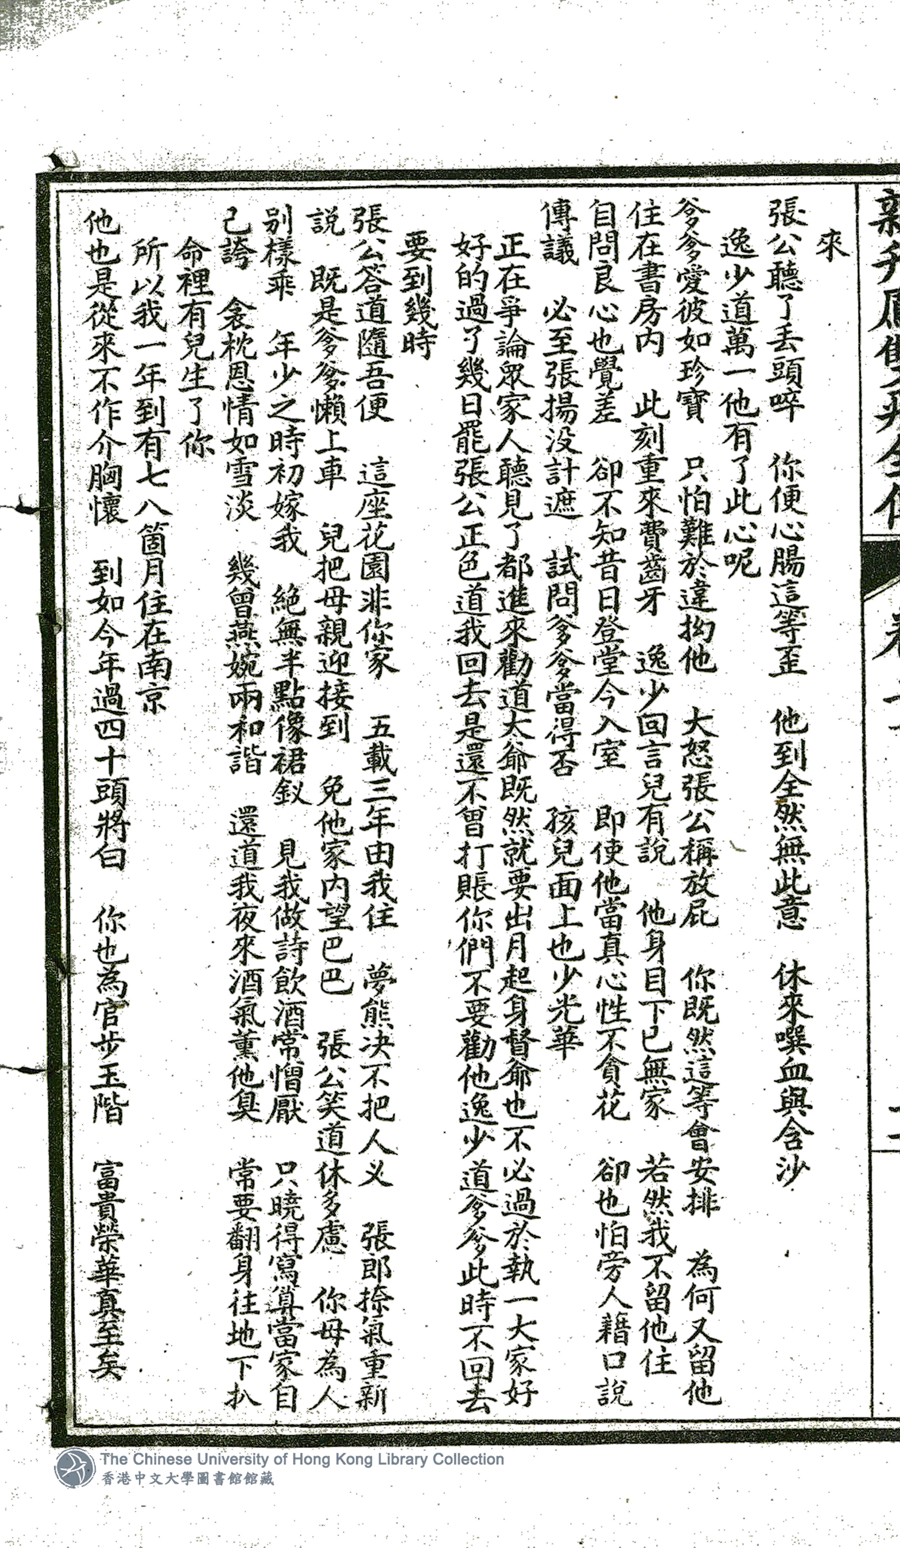 來
張公聽了丢頭啐　你便心腸這等歪　他到全然無此意　休來噀血與含沙
逸少道萬一他有了此心呢
爹爹愛彼如珍寶　只怕難於違拗他　大怒張公稱放屁　你既然這等會安排　為何又留他
住在書房內　此刻重來費齒牙　逸少回言兒有說　他身目下已無家　若然我不留他住
自問良心也覺差　卻不知昔日登堂今入室　即使他當真心性不貪花　卻也怕旁人藉口說
傳議　必至張揚没計遮　試問爹爹當得否　孩兒面上也少光華
正在爭論眾家人聽見了都進來勸道大爺既然就要出月起身督爺也不必過於執一大家好
好的過了幾日罷張公正色道我回去是還不曾打賬你們不要勸他逸少道爹爹此時不回去
要到幾時
張公答道隨吾便　這座花園非你家　五載三年由我住　夢熊决不把人义　張郎捺氣重新
說　既是爹爹懶上車　兒把母親迎接到　免他家內望巴巴　張公笑道休多慮　你母為人
别樣乖　年少之時初嫁我　絕無半點像裙釵　見我做詩飲酒常憎厭　只曉得寫算當家自
己誇　衾枕恩情如雪淡　幾曾燕婉兩和諧　還道我夜來酒氣薰他臭　常要翻身往地下扒
命裡有兒生了你
所以我一年到有七八箇月住在南京
他也是從來不作介胸懷　到如今年過四十頭將白　你也為官步玉階　富貴榮華真至矣
The Chinese University of Hong Kong Library Collection
香港中文大學圖書館館藏